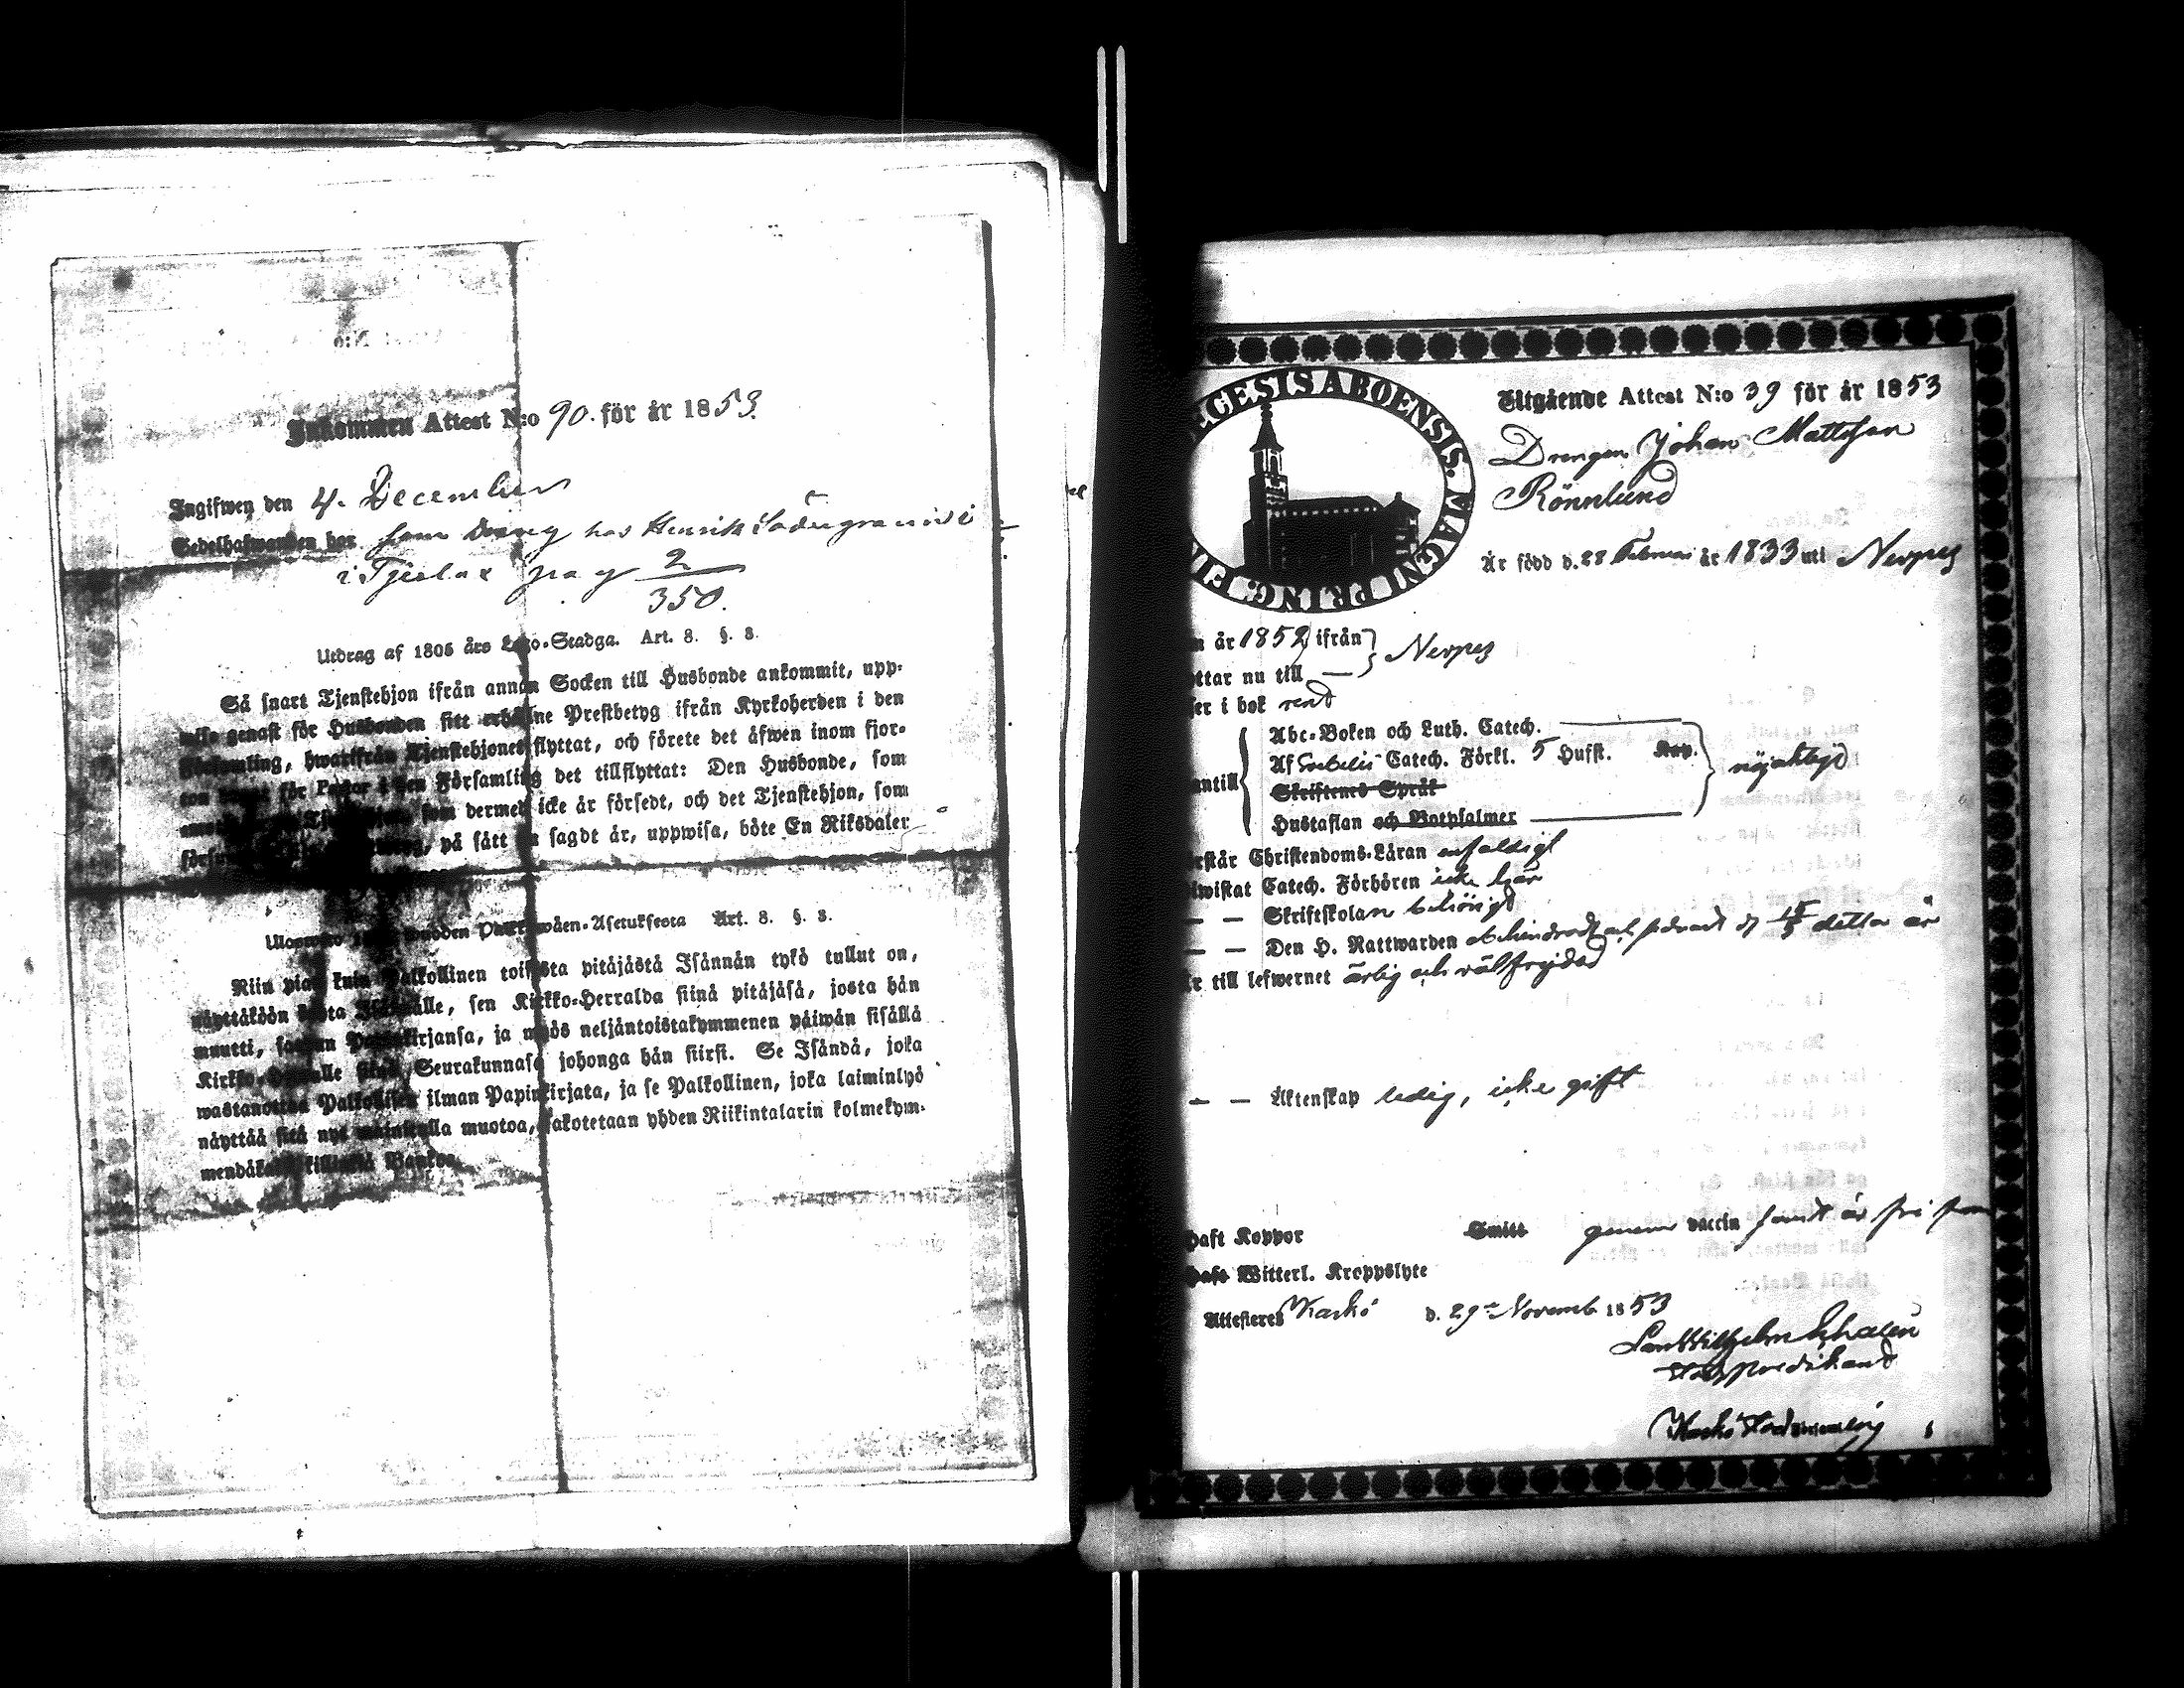 Inkommen Attest N:o 90. för år 1853.
Ingifwen den 4. December
Sedelhafwanden har som Dräng hos Henrik Södergrann i
i Tjerlax pag 2
350.
Utdrag af 1805 års Lego-Stadga. Art. 8. §. 3.
Så snart Tjenstehjon ifrån annan Socken till Husbonde ankommit, upp-
wise genast för Husbonden sitt erhållne Prestbetyg ifrån Kyrkoherden i den
Församling, hwarifrån Tjenstehjonet flyttat, och förete det äfwen inom fjor-
ton för Pastor i den Församling det tillflyttat: Den Husbonde, som
som dermed icke är försedt, och det Tjenstehjon, som
på sätt sagdt är, uppwisa, böte En Riksdaler
Art. 8. §. 3.
Niin pian kuin Palkollinen toisesta pitäjästä Isännän tykö tullut on,
näyttäköön Isännälle, sen Kirkko-Herralda siinä pitäjäsä, josta hän
muutti, Papinkirjansa, ja myös neljäntoistakymmenen päiwän sisällä
Kirkko-Herralle Seurakunnasa johonga hän siirsi. Se Isändä, joka
wastanottaa Palkollisen ilman Papinkirjata, ja se Palkollinen, joka laiminlyö
näyttää sitä nyt mainitulla muotoa, sakotetaan yhden Riikintalarin kolmekym-
mendä killingiä Bankoa.
ECESIS ABOENSIS. MAGNI PRINC. FIN
Utgående Attest N:o 39 för år 1853
Drengen Johan Mattsson
Rönnlund
Är född d. 28 Februari år 1833 uti Nerpes
n år 1852 ifrån
ttar nu till — Nerpes
er i bok rent
Abc-Boken och Luth. Catech.
Af Svebelii Catech. Förkl. 5 Hufst. Kap.
antill nöjaktigt
Skriftenes Språk
Hustaflan och Botpsalmer
rstår Christendoms-Läran enfaldigt
iwistat Catech. Förhören icke här
— — Skriftskolan behörigt
— — Den H. Nattwarden obehindradt och sednast d 15/5 detta år
r till lefwernet ärlig och välfrejdad
— — Äktenskap ledig, icke gift
haft Koppor Smitt genom vaccin samt är fri från
haft Witterl. Kroppslyte
Attesteres Kaskö d. 29de Novemb. 1853
Wilhelm
predikant
Kaskö